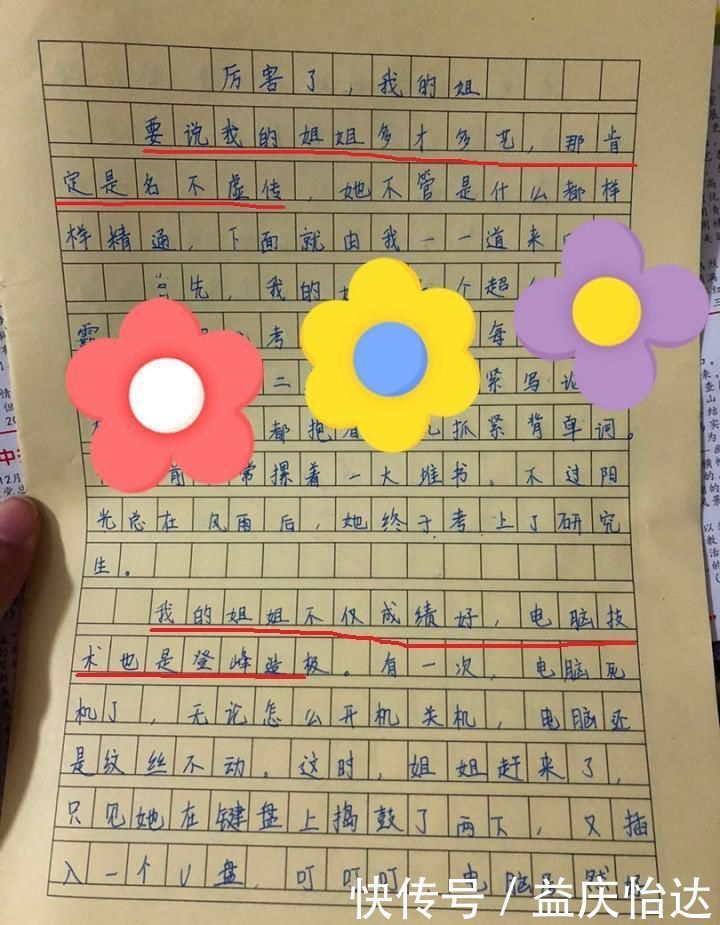 厉害了，我的姐
要说我的姐姐多才多艺，那肯
定是名不虚传，她不管是什么都样
样精通，下面就由我一一道来
首先，我的 个超
霸 考 每
二 紧写论
都抱着 抓紧背单词。
前 常摞着一大堆书。不过阳
光总在风雨后，她终于考上了研究
生。
我的姐姐不仅成绩好，电脑技
术也是登峰造极。有一次，电脑死
机了，无论怎么开机关机，电脑还
是纹丝不动。这时，姐姐赶来了，
只见她在键盘上捣鼓了两下，又插
入一个U盘，叮叮叮，电脑
快传号／益庆怡达